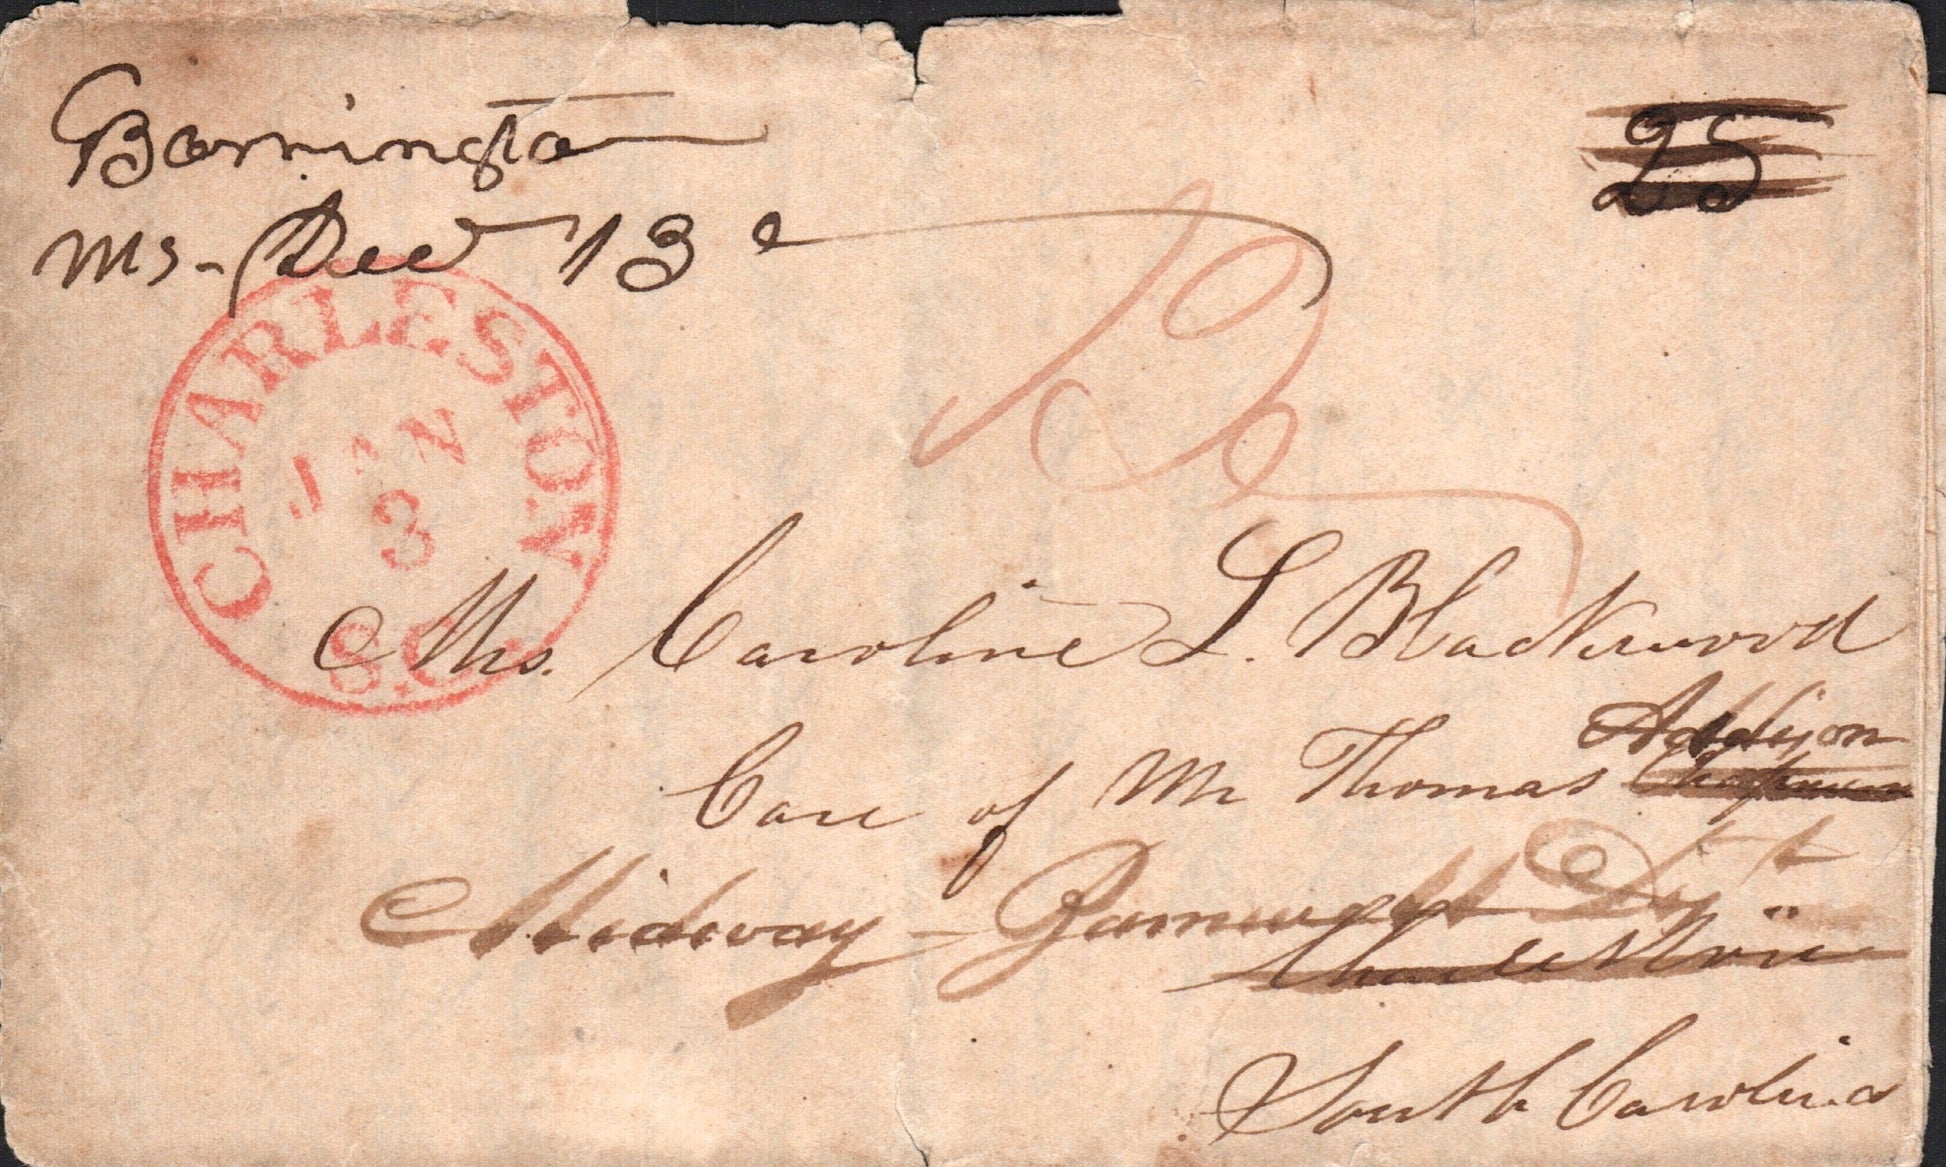 Barrington
Ms- Dec 13
25
CHARLESTON
JAN
3
S.C.
12
Mrs. Caroline L. Blackwood
Care of Mr Thomas Addison
Midway - Barnwell Dist
South Carolina